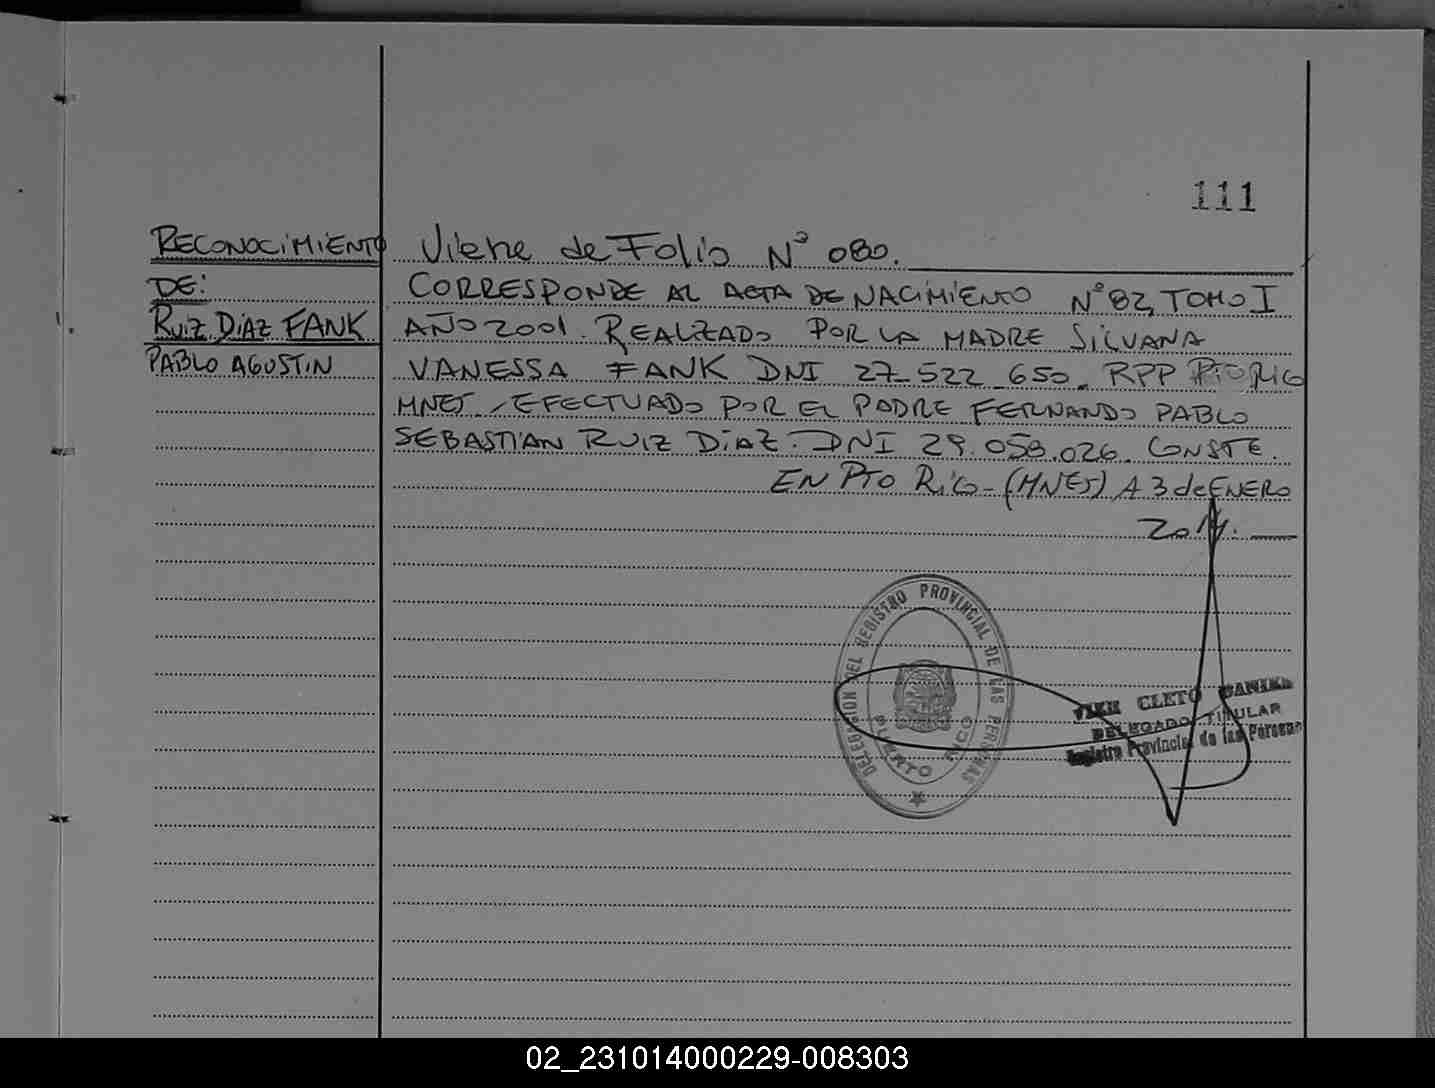 111
RECONOCIMIENTO
DE:
RUIZ DIAZ FANK
PABLO AGUSTIN
Viene de Folio N° 080.
CORRESPONDE AL ACTA DE NACIMIENTO N° 82, TOMO I
AÑO 2001. REALIZADO POR LA MADRE SILVANA
VANESSA FANK DNI 27.522.650. RPP PTO RICO
MNES, EFECTUADO POR EL PADRE FERNANDO PABLO
SEBASTIAN RUIZ DIAZ. DNI 29.058.026. CONSTE.
EN PTO RICO - (MNES) A 3 de ENERO
2014.
DELEGACION DEL REGISTRO PROVINCIAL DE LAS PERSONAS
PUERTO RICO
CLETO
DELEGADO TITULAR
Registro Provincial de las Personas
02_231014000229-008303